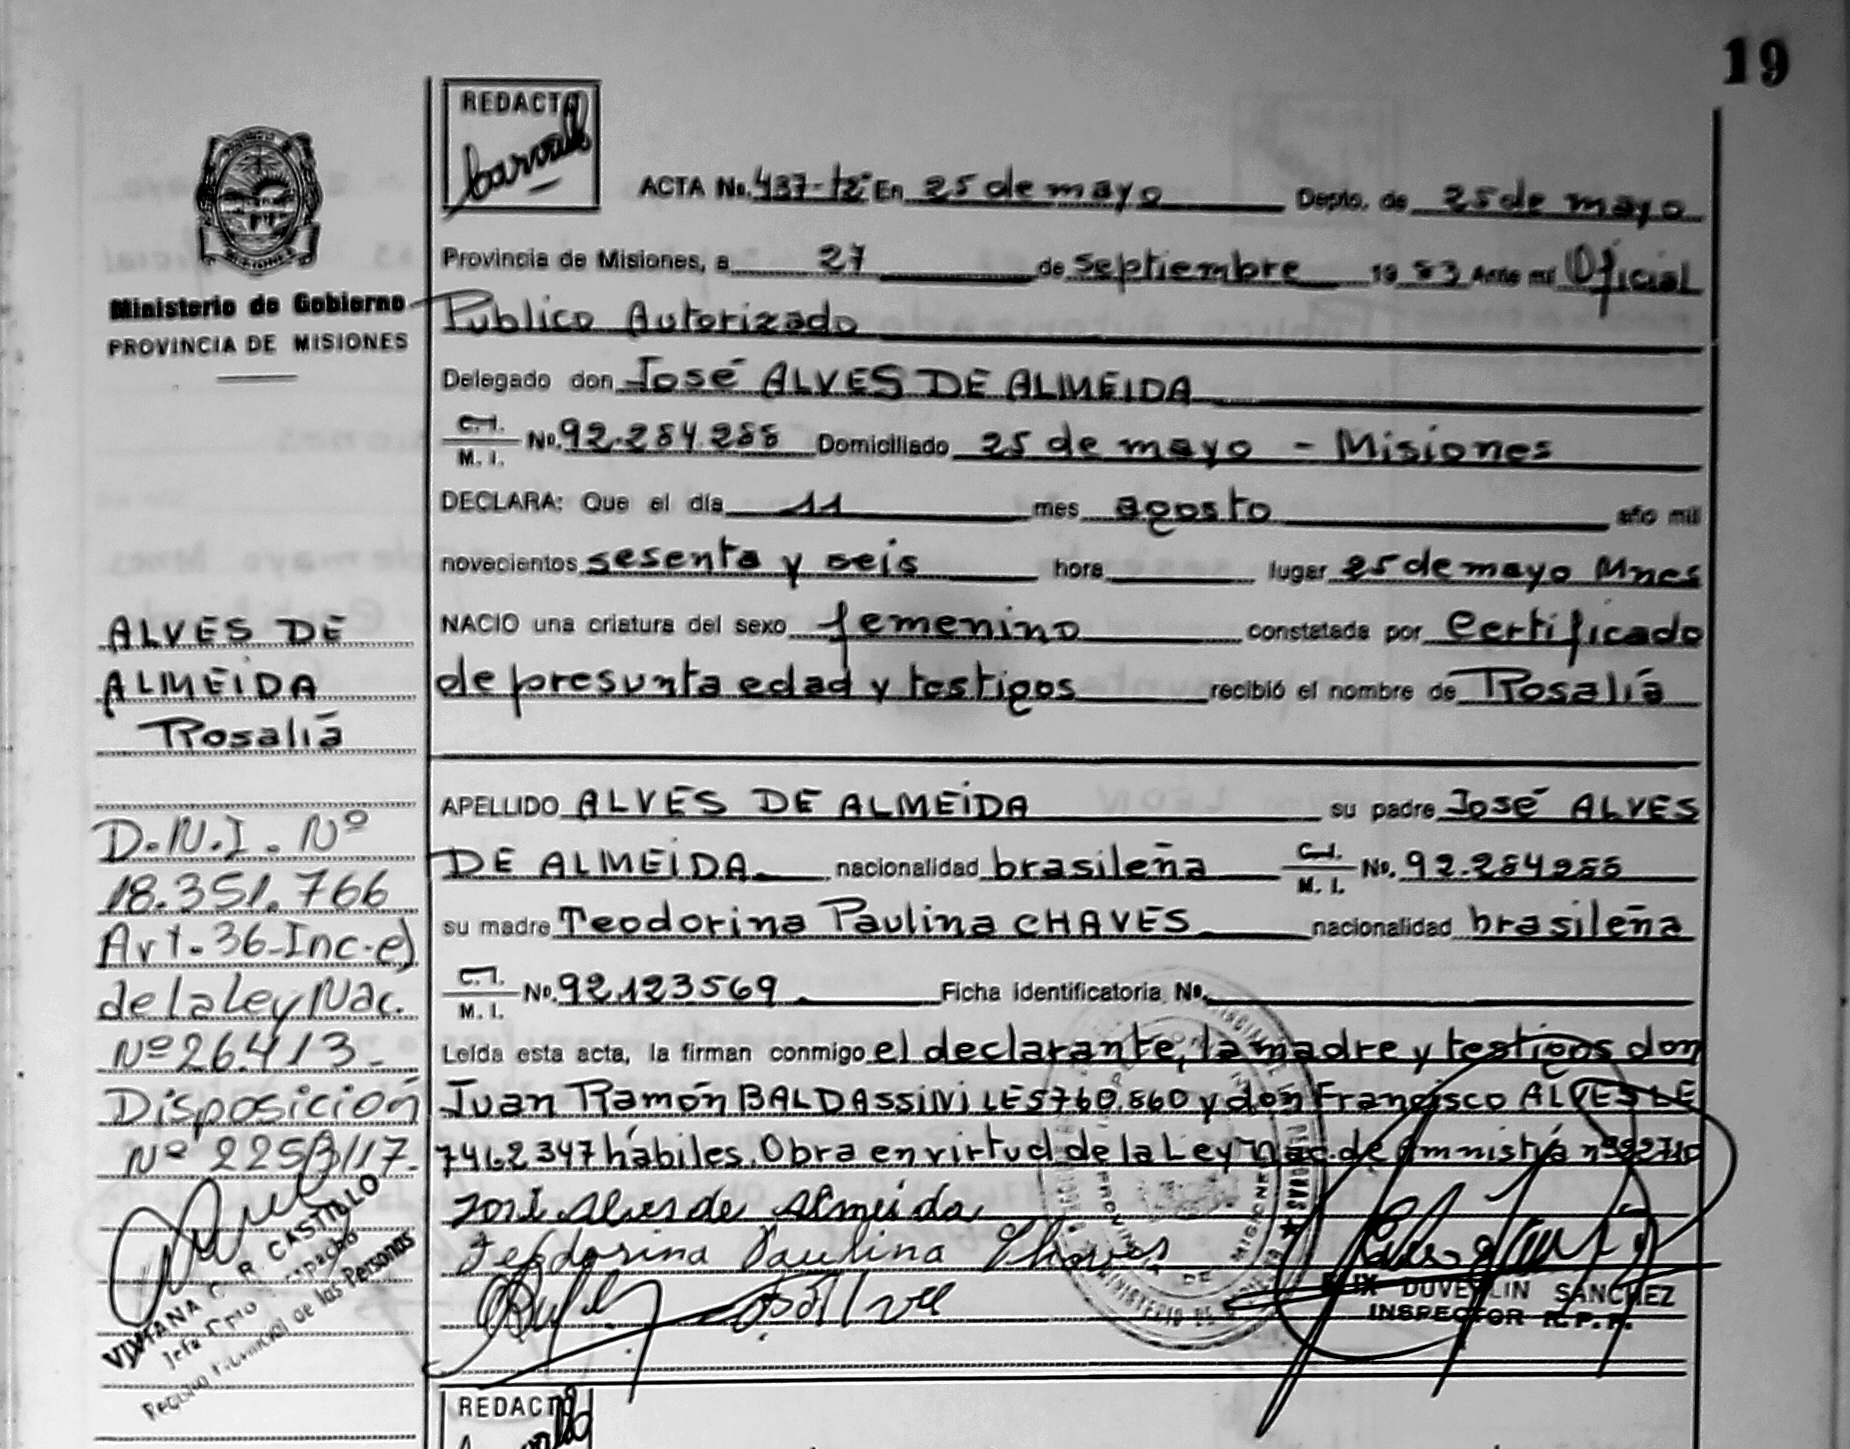 19
REDACTO
ACTA No. 437-tº En 25 de mayo Depto. de 25 de mayo
Provincia de Misiones, a 27 de septiembre 1983 Ante mi Oficial
Publico Autorizado
Ministerio de Gobierno
PROVINCIA DE MISIONES
Delegado don José ALVES DE ALMEIDA
C.I. M. I. No. 92.284.288 Domiciliado 25 de mayo - Misiones
DECLARA: Que el día 11 mes agosto año mil
novecientos sesenta y seis hora lugar 25 de mayo Mnes
NACIO una criatura del sexo femenino constatada por Certificado
de presunta edad y testigos recibió el nombre de Rosalía
APELLIDO ALVES DE ALMEIDA su padre José ALVES
DE ALMEIDA nacionalidad brasileña C.I. M. I. No. 92.284288
su madre Teodorina Paulina CHAVES nacionalidad brasileña
C.I. M. I. No. 92.123569 Ficha identificatoria No.
Leída esta acta, la firman conmigo el declarante, la madre y testigos don
Juan Ramón BALDASSINI LE5760.860 y don Francisco ALVES LE
7462347 hábiles. Obra en virtud de la Ley Nac. de Amnistía nº22710
José Alves de Almeida
Teodorina Paulina Chaves
DUVERLIN SANCHEZ
INSPECTOR R.P.P.
ALVES DE
ALMEIDA
Rosalía
D.N.I. Nº
18.351.766
Art. 36-Inc-e)
de la Ley Nac.
Nº 26413-
Disposición
Nº 2253/17.
VIVIANA C. R. CASTILLO
Jefa Dpto Despacho
Registro Provincial de las Personas
REDACTO